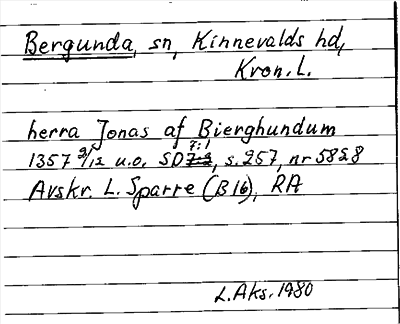 Bergunda, sn, Kinnevalds hd,
Kron. L.
herra Jonas af Bierghundum
1357 2/12 u.o. SD 7:1, s. 257, nr 5828
Avskr. L. Sparre (B 16), RA
L. Aks. 1980